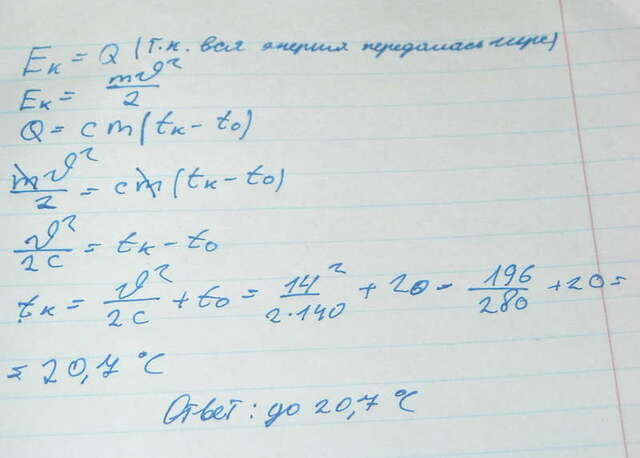 Eк = Q (т.к. вся энергия передалась гире)
Eк = mϑ²/2
Q = cm(tк - t0)
mϑ²/2 = cm(tк - t0)
ϑ²/2c = tк - t0
tк = ϑ²/2c + t0 = 14²/2·140 + 20 = 196/280 + 20 =
= 20,7 °C
Ответ: до 20,7 °C